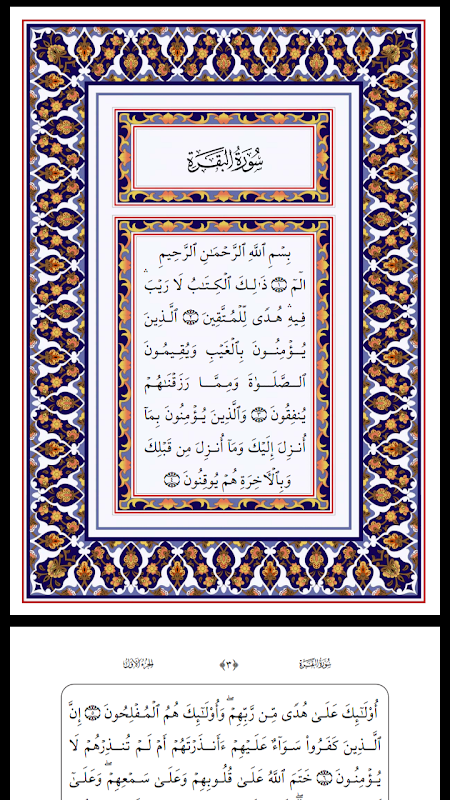 سُورَةُ البَقَرَةِ
بِسْمِ ٱللَّهِ ٱلرَّحْمَٰنِ ٱلرَّحِيمِ
الٓمٓ ١ ذَٰلِكَ ٱلْكِتَٰبُ لَا رَيْبَۛ
فِيهِۛ هُدًى لِّلْمُتَّقِينَ ٢ ٱلَّذِينَ
يُؤْمِنُونَ بِٱلْغَيْبِ وَيُقِيمُونَ
ٱلصَّلَوٰةَ وَمِمَّا رَزَقْنَٰهُمْ
يُنفِقُونَ ٣ وَٱلَّذِينَ يُؤْمِنُونَ بِمَآ
أُنزِلَ إِلَيْكَ وَمَآ أُنزِلَ مِن قَبْلِكَ
وَبِٱلْءَاخِرَةِ هُمْ يُوقِنُونَ ٤
سُورَةُ البَقَرَةِ
﴿٣﴾
الجزء الأول
أُو۟لَٰٓئِكَ عَلَىٰ هُدًى مِّن رَّبِّهِمْۖ وَأُو۟لَٰٓئِكَ هُمُ ٱلْمُفْلِحُونَ ٥ إِنَّ
ٱلَّذِينَ كَفَرُوا۟ سَوَآءٌ عَلَيْهِمْ ءَأَنذَرْتَهُمْ أَمْ لَمْ تُنذِرْهُمْ لَا
يُؤْمِنُونَ ٦ خَتَمَ ٱللَّهُ عَلَىٰ قُلُوبِهِمْ وَعَلَىٰ سَمْعِهِمْۖ وَعَلَىٰٓ